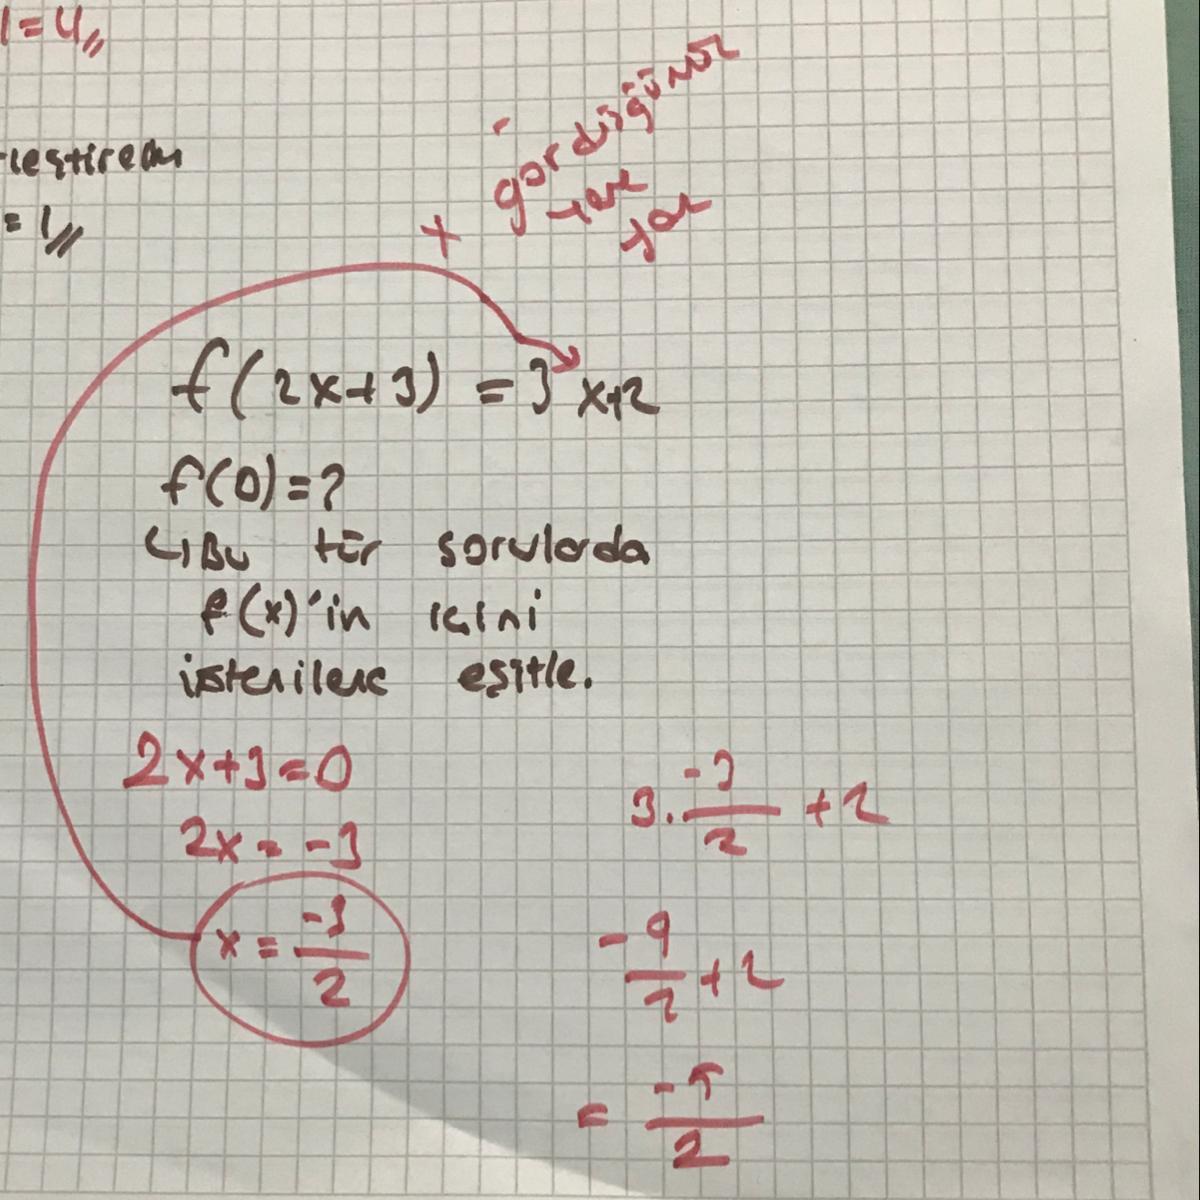 1=4//
-leştirem
= 1//
x gördüğünüz
yere
yaz
f(2x+3) = 3x+2
f(0)=?
↳Bu tür sorularda
f(x)'in içini
istenilene eşitle.
2x+3=0
2x = -3
x = -3/2
3. -3/2 +2
-9/2 +2
= -5/2